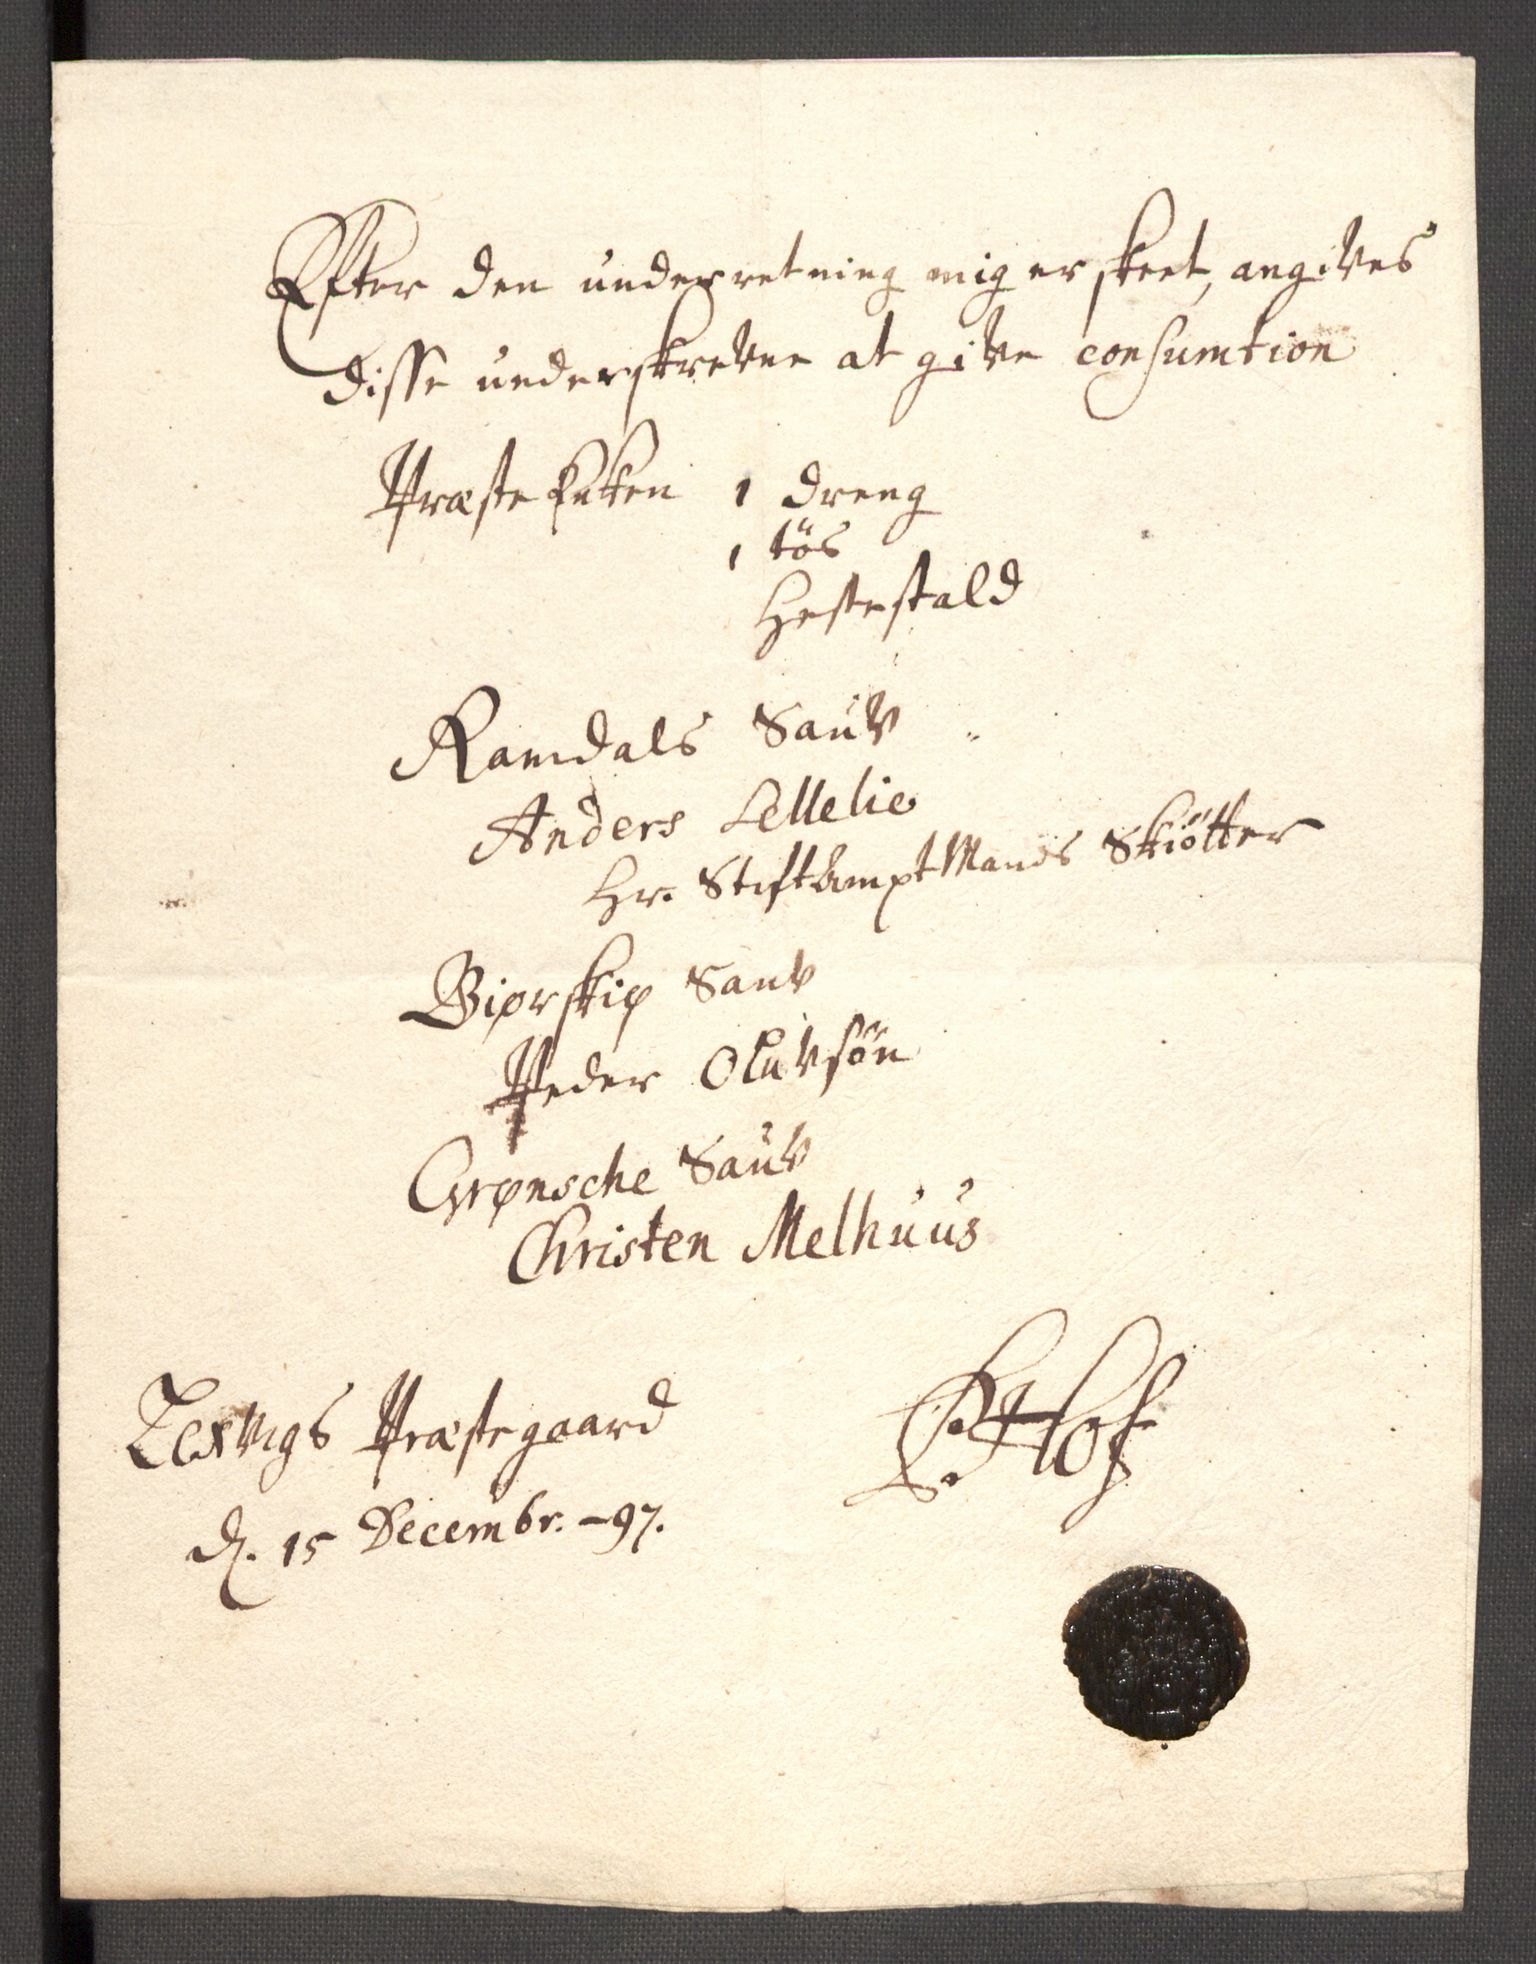 Efter den underretning mig er skeet, angives
disse underskrevne at give consumtion
Præste Enken 1 dreng
1 tös
Hestestald
Ramdals Sauv
Anders Lellelie
Hr. StiftAmptMands Skiötter
Biørskip Sauv
Peder Olüvsøn
Grønsche Sauv
Christen Melhuus
Lexvigs Præstegaard
d. 15 Decembr. -97.
Hof